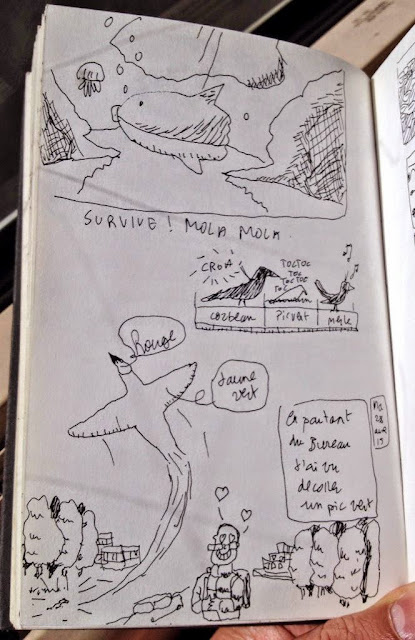 SURVIVE ! MOLA MOLA.
CROA
TOCTOC
TOC
TOCTOC
TOC
corbeau
Pivert
merle
Rouge
Jaune
vert
En partant
du Bureau
J'ai vu
decoller
un pic vert
Ma
28
avr
15